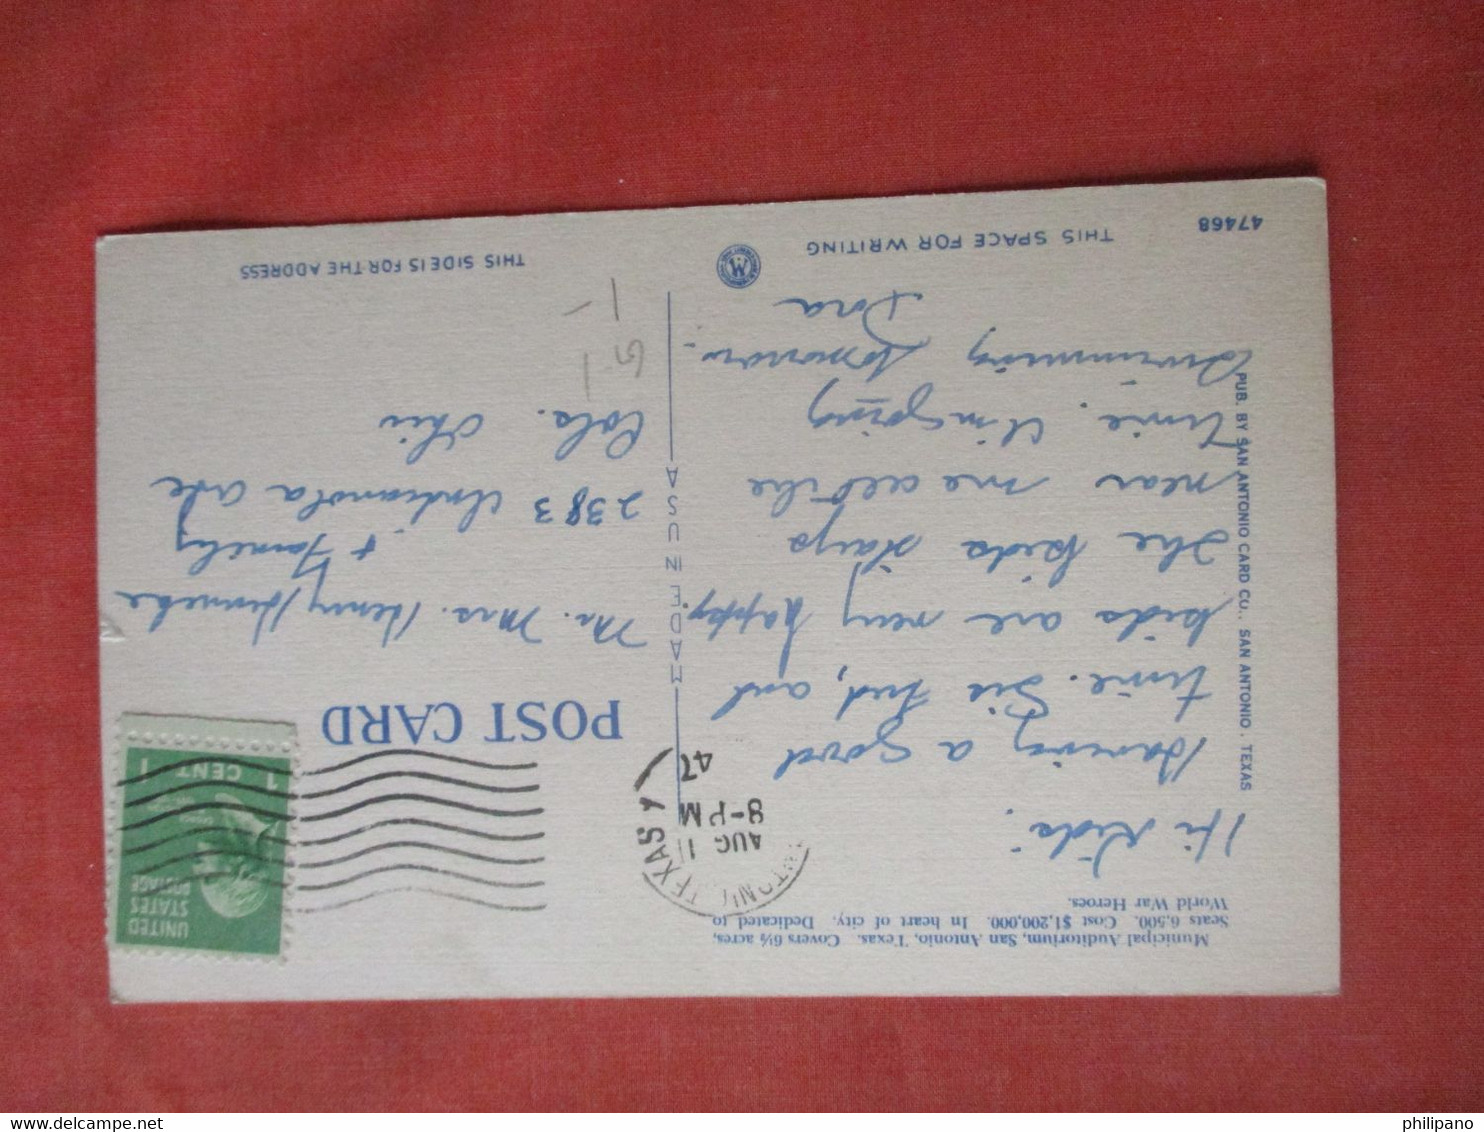 Municipal Auditorium, San Antonio, Texas. Covers 6½ acres,
Seats 6,500. Cost $1,200,000. In heart of city. Dedicated to
World War Heroes.
Hi Kids:
Having a good
time. Sis, Fred, and
kids are very happy.
The kids stays
near me all the
time. Im going
Swimming tomorrow.
Dora
THIS SPACE FOR WRITING
47468
PUB. BY SAN ANTONIO CARD CO., SAN ANTONIO, TEXAS
MADE IN USA
TEXAS
AUG 11
8-PM
47
POST CARD
UNITED
STATES
POSTAGE
1 CENT 1
Mr. Mrs. Henry
& Family
2383 Indianola Ave
Cols. Ohio
G-1
1-
THIS SIDE IS FOR THE ADDRESS
philipano